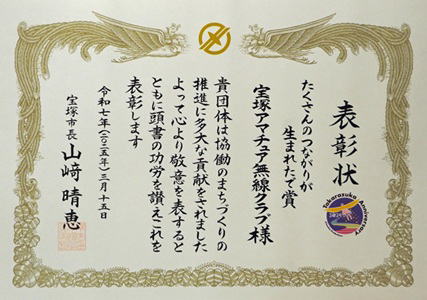 表彰状
たくさんのつながりが
生まれたで賞
宝塚アマチュア無線クラブ様
貴団体は協働のまちづくりの
推進に多大な貢献をされました
よって心より敬意を表すると
ともに頭書の功労を讃えこれを
表彰します
令和七年(二〇二五年)三月十五日
宝塚市長 山﨑晴恵
Takarazuka Anniversary